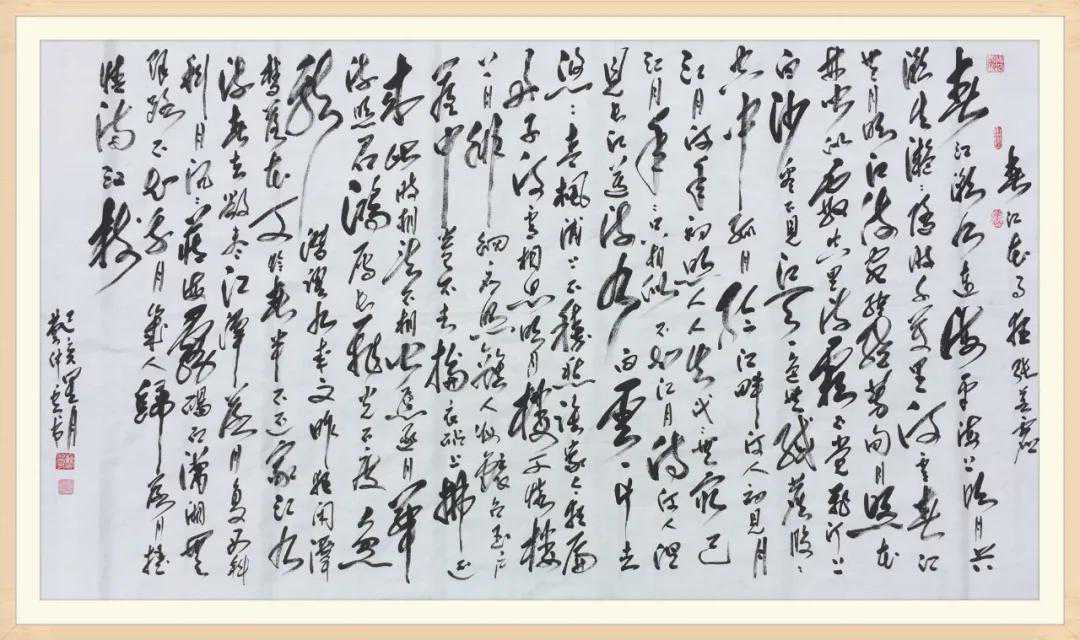 春江花月夜張若虛
春江潮水連海平海上明月共
潮生灩灩隨波千萬里何處春江
無月明江流宛轉繞芳甸月照花
林皆似霰空里流霜不覺飛汀上
白沙看不見江天一色無纖塵皎皎
空中孤月輪江畔何人初見月
江月何年初照人人生代代無窮已
江月年年只相似不知江月待何人但
見長江送流水白雲一片去
悠悠青楓浦上不勝愁誰家今夜扁
舟子何處相思明月樓可憐樓
上月徘徊應照離人妝鏡台玉戶
簾中卷不去搗衣砧上拂還
來此時相望不相聞願逐月華
流照君鴻雁長飛光不度魚
龍潛躍水成文昨夜閑潭
夢落花可憐春半不還家江水
流春去欲盡江潭落月復西斜
斜月沉沉藏海霧碣石瀟湘無
限路不知乘月幾人歸落月搖
情滿江樹